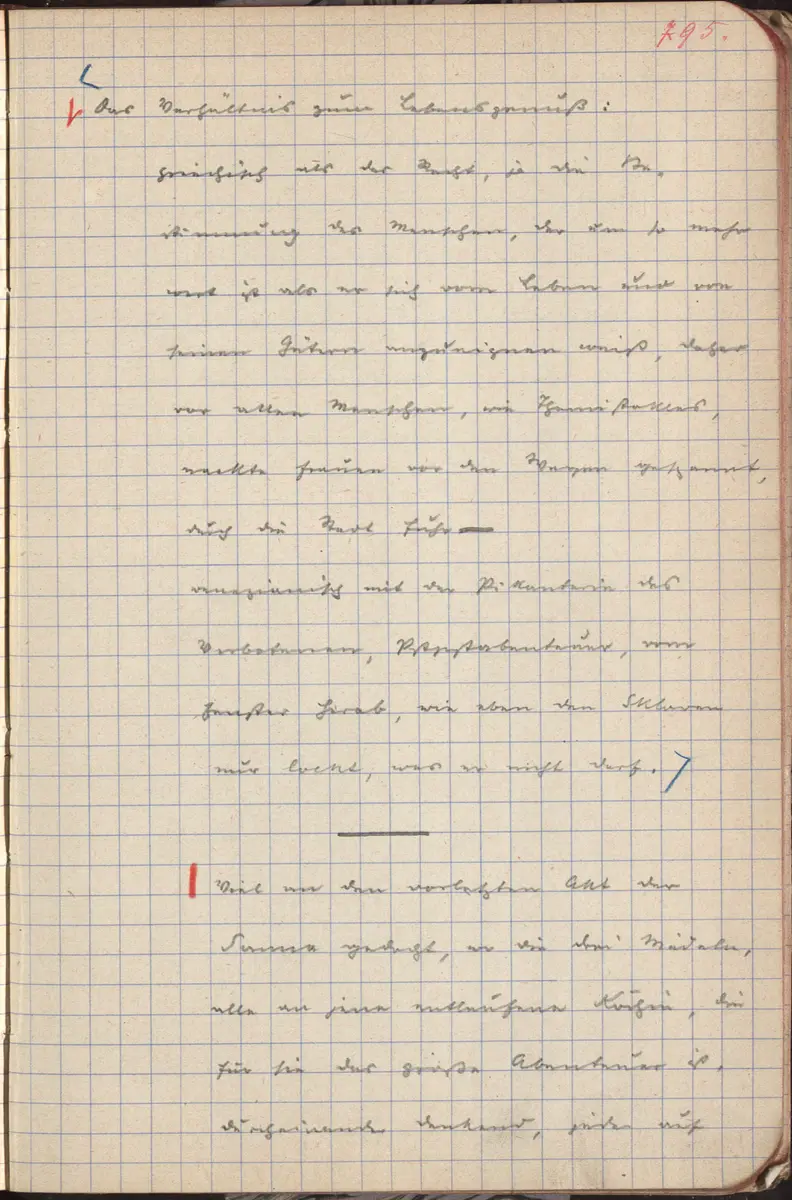 795.
Das Verhältnis zum Lebensgenuß:
griechisch als das Recht, ja die Be-
stimmung des Menschen, der um so mehr
wert ist als er sich vom Leben und von
seinen Gütern anzueignen weiß, daher
vor allen Menschen, wie Themistokles,
nackte Frauen vor den Wagen gespannt,
durch die Stadt fuhr —
venezianisch mit der Pikanterie des
Verbotenen, abenteuer, vom
Fenster herab, wie eben den Sklaven
nur lockt, was er nicht darf.
Viel an den vorletzten Akt der
Sanna gedacht, wo die drei Mädeln,
alle an jene entlaufene Köchin, die
für sie das große Abenteuer ist,
durcheinander denkend, jede auf